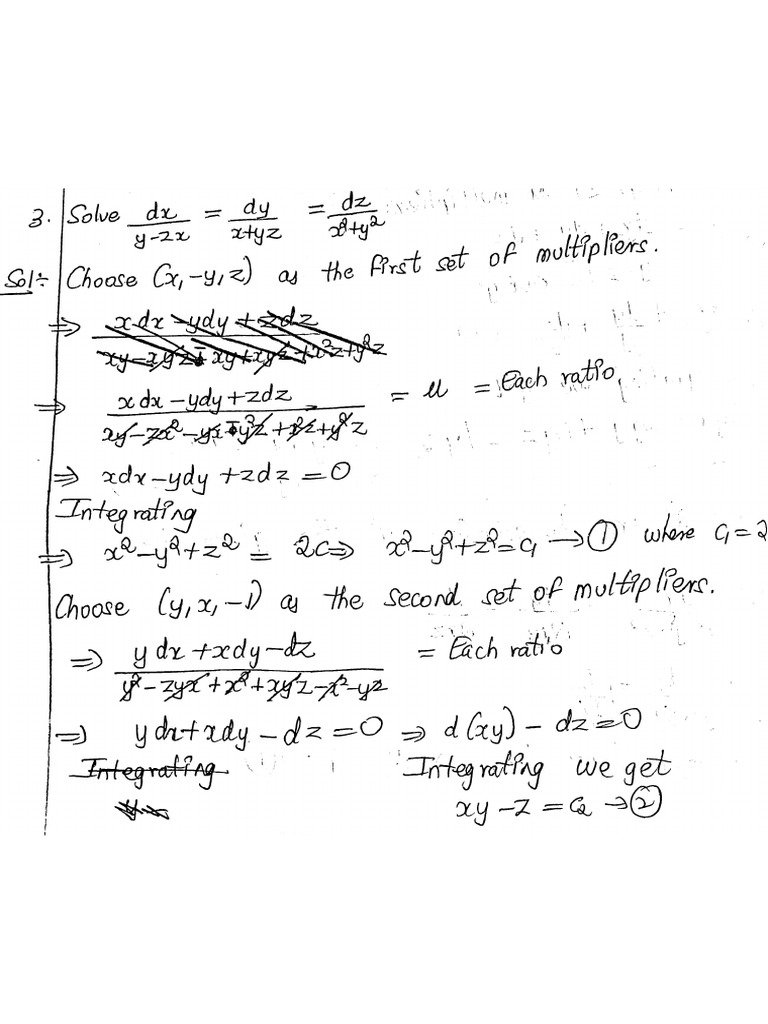 3. Solve dx/(y-zx) = dy/(x+yz) = dz/(x²+y²)
Sol:- Choose (x, -y, z) as the first set of multipliers.
⇒ (xdx - ydy + zdz)/(xy - xyz + xy + xyz + x²z + y²z)
⇒ (xdx - ydy + zdz)/(xy - zx² - yx - y²z + x²z + y²z) = u = Each ratio
⇒ xdx - ydy + zdz = 0
Integrating
⇒ x² - y² + z² = 2C ⇒ x² - y² + z² = C₁ → ① where C₁ = 2
Choose (y, x, -1) as the second set of multipliers.
⇒ (ydx + xdy - dz)/(y² - zyx + x² + xyz - x² - y²) = Each ratio
⇒ ydx + xdy - dz = 0 ⇒ d(xy) - dz = 0
Integrating Integrating we get
xy - z = C₂ → ②